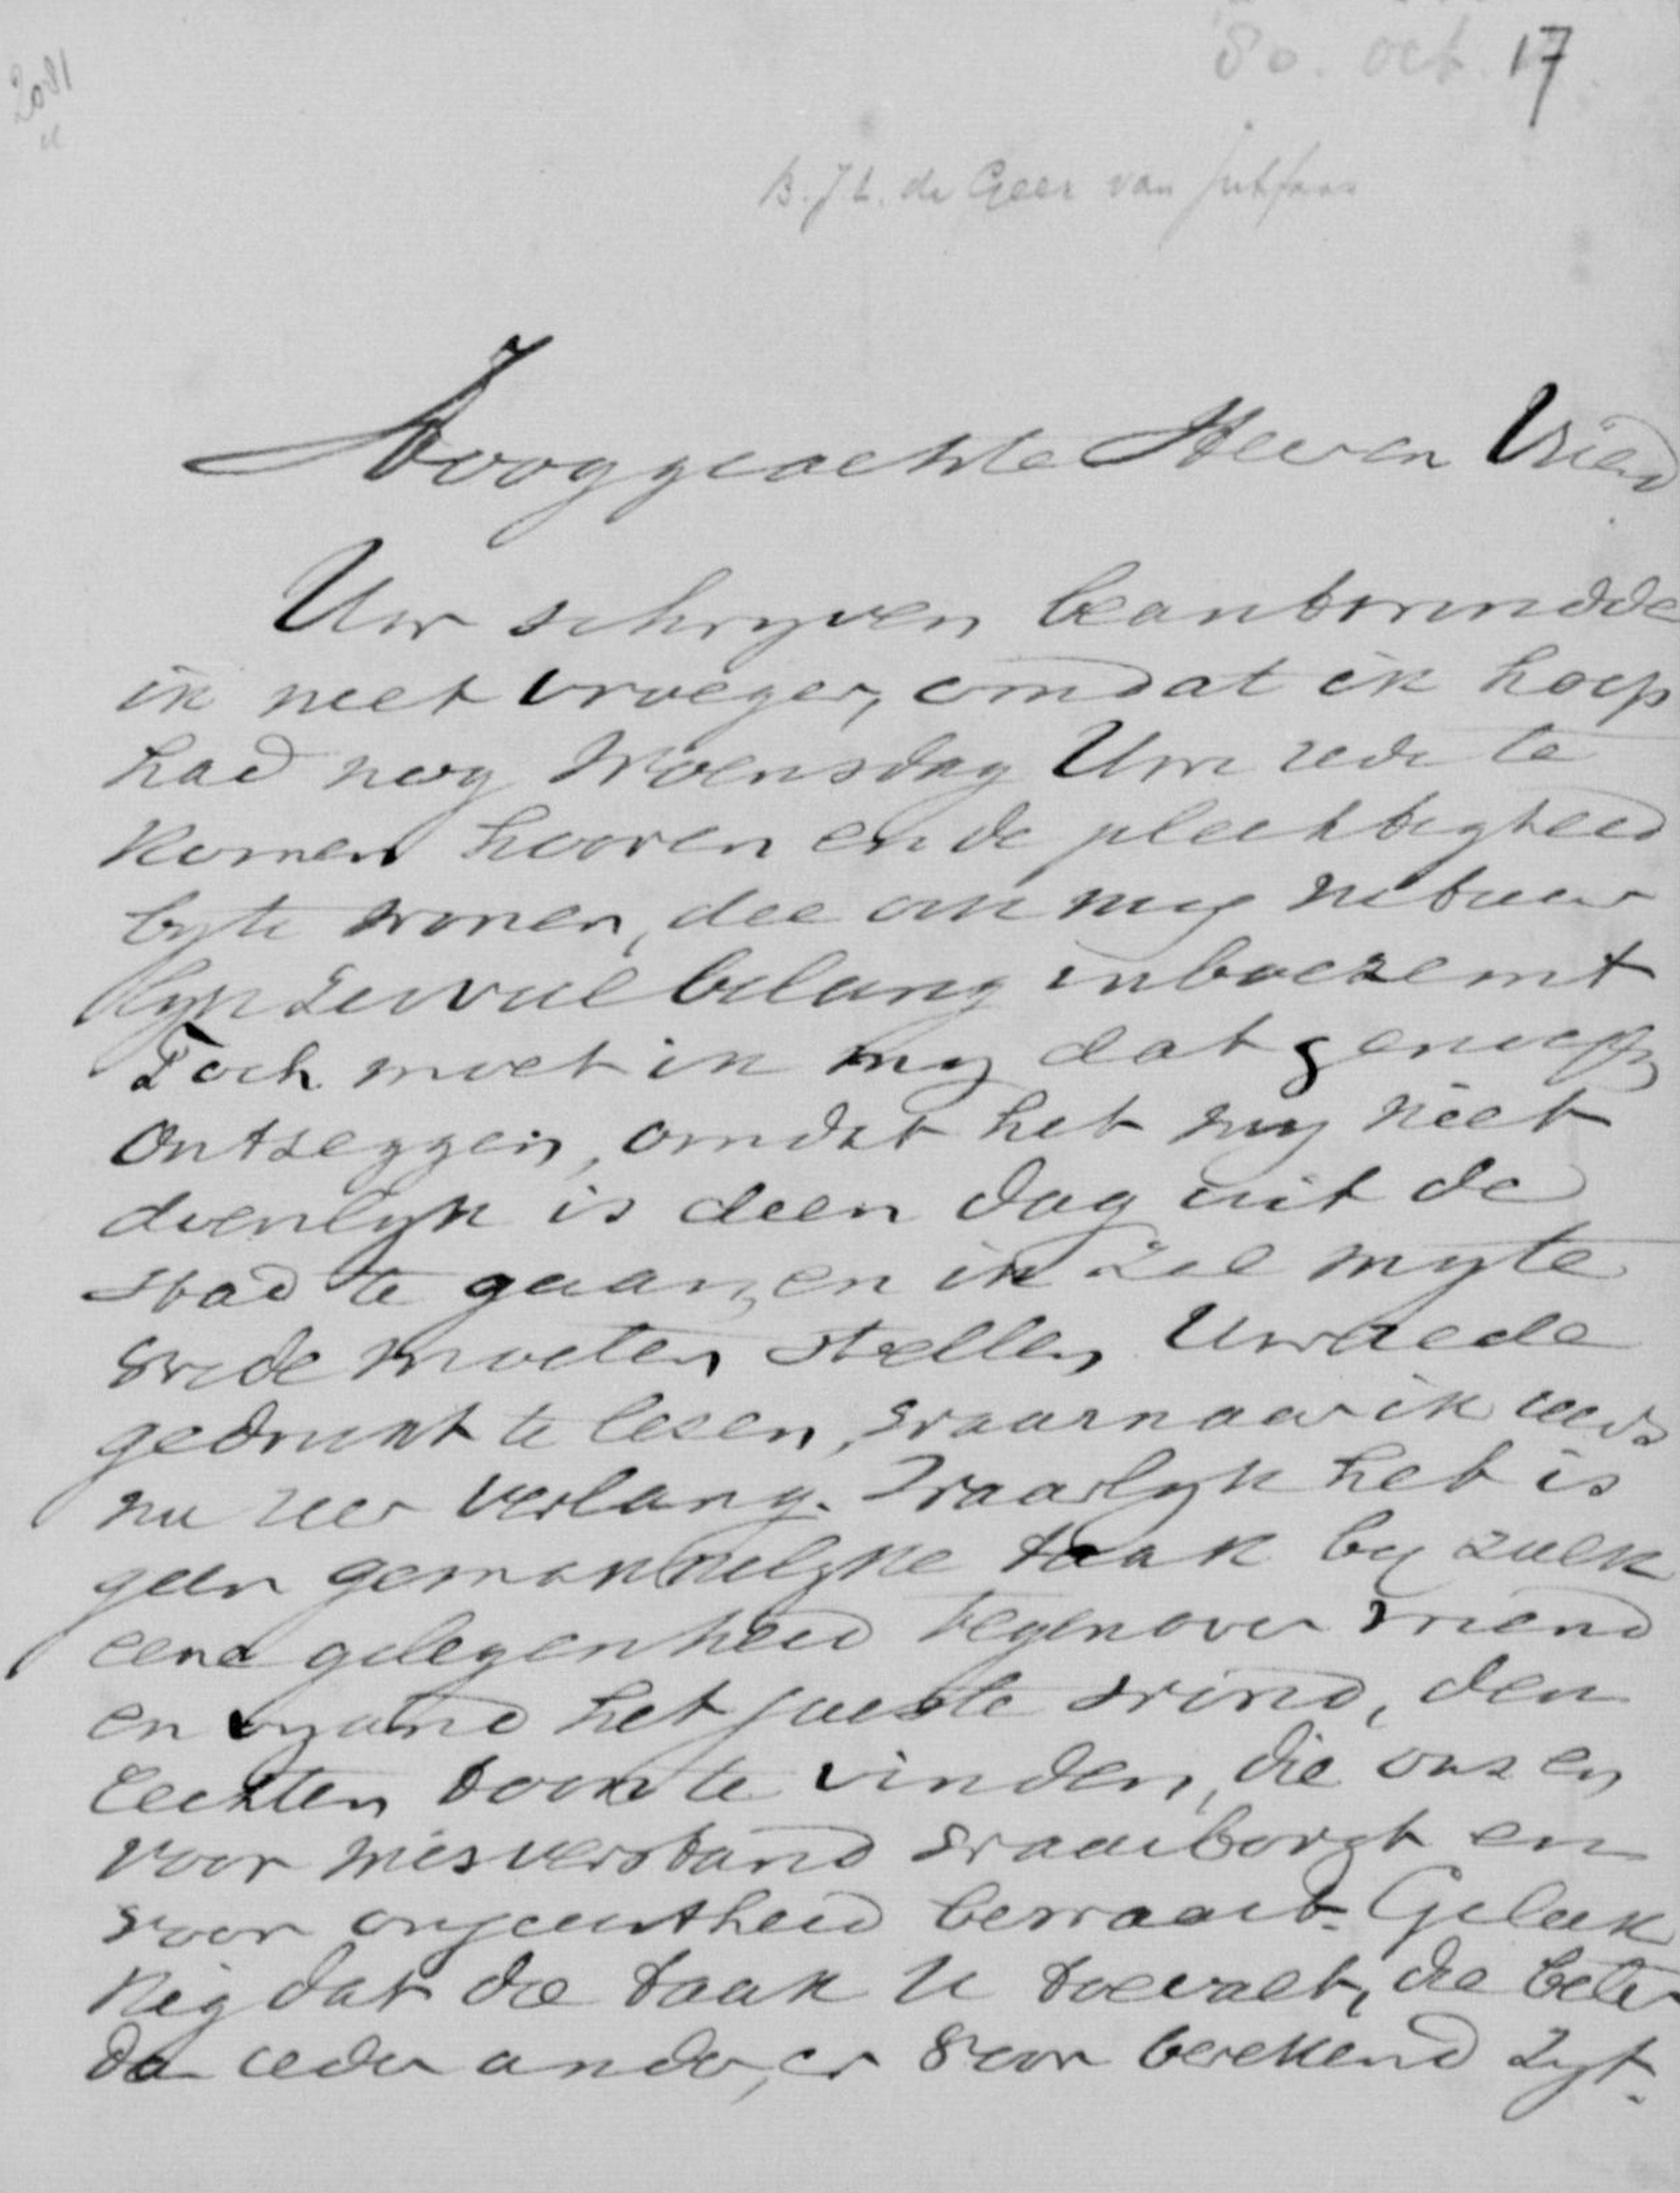 2081
80. oct. 17
B. J. L. de Geer van Jutfaas
Hooggeachte Heer en Vriend
Uw schryven beantwoordde
ik niet vroeger, omdat ik hoop
had nog Woensdag Uw rede te
komen hooren en de plechtigheid
by te wonen, die ook my natuur
lyk zeer veel belang inboezemt
Toch moet ik my dat genoegen
ontzeggen, omdat het my niet
doenlyk is dien dag uit de
stad te gaan, en ik zal my te
vrede moeten stellen Uw rede
gedrukt te lezen, waarnaar ik reeds
nu zeer verlang. Waarlyk het is
geen gemakkelyke taak by zulk
eene gelegenheid tegenover vriend
en vyand het juiste woord, den
echten toon te vinden, die ons en
voor misverstand waarborgt en
voor onjuistheid bewaart. Geluk
kig dat die taak U toevalt, die beter
dan ieder ander, er voor berekend zyt.